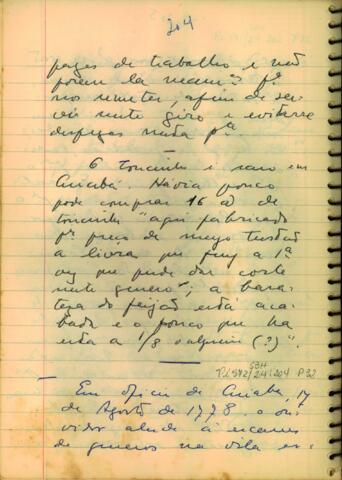 204
pagos de trabalho e não
foram la mesmos pª
nos remeter, afim de ser-
vir neste giro e evitarse
despezas nesta pª
O toucinho é raro em
Cuiabá. Havia pouco
pode comprar 16 @ de
toucinho "aqui fabricado
pº preço de meya
a livra que foy a 1ª
vez que pude dar corte
neste genero"; a bara-
teza do feijão está aca-
bada e o pouco que ha
esta a 1/8 o alqueire (?)".
SBH
Pi 592/24:204 P32
Em oficio de Cuiabá, 17
de Agosto de 1778 o ou-
vidor alude à escassez
de generos na vila es-